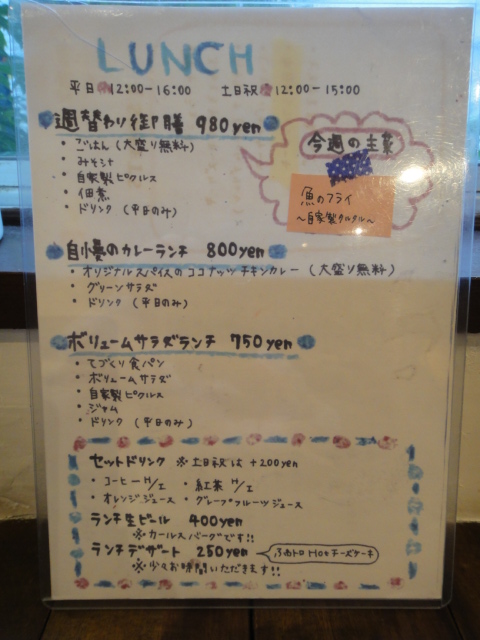 LUNCH
平日 12:00-16:00 土日祝 12:00-15:00
週替わり御膳 980yen
・ごはん(大盛り無料)
・みそ汁
・自家製ピクルス
・佃煮
・ドリンク (平日のみ)
今週の主菜
魚のフライ
〜自家製タルタル〜
自慢のカレーランチ 800yen
・オリジナルスパイスのココナッツチキンカレー (大盛り無料)
・グリーンサラダ
・ドリンク (平日のみ)
ボリュームサラダランチ 750yen
・てづくり食パン
・ボリュームサラダ
・自家製ピクルス
・ジャム
・ドリンク (平日のみ)
セットドリンク ※土日祝は+200yen
・コーヒーH/I ・紅茶H/I
・オレンジジュース ・グレープフルーツジュース
ランチ生ビール 400yen
※カールスバーグです!!
ランチデザート 250yen ふわトロHotチーズケーキ
※少々お時間いただきます!!